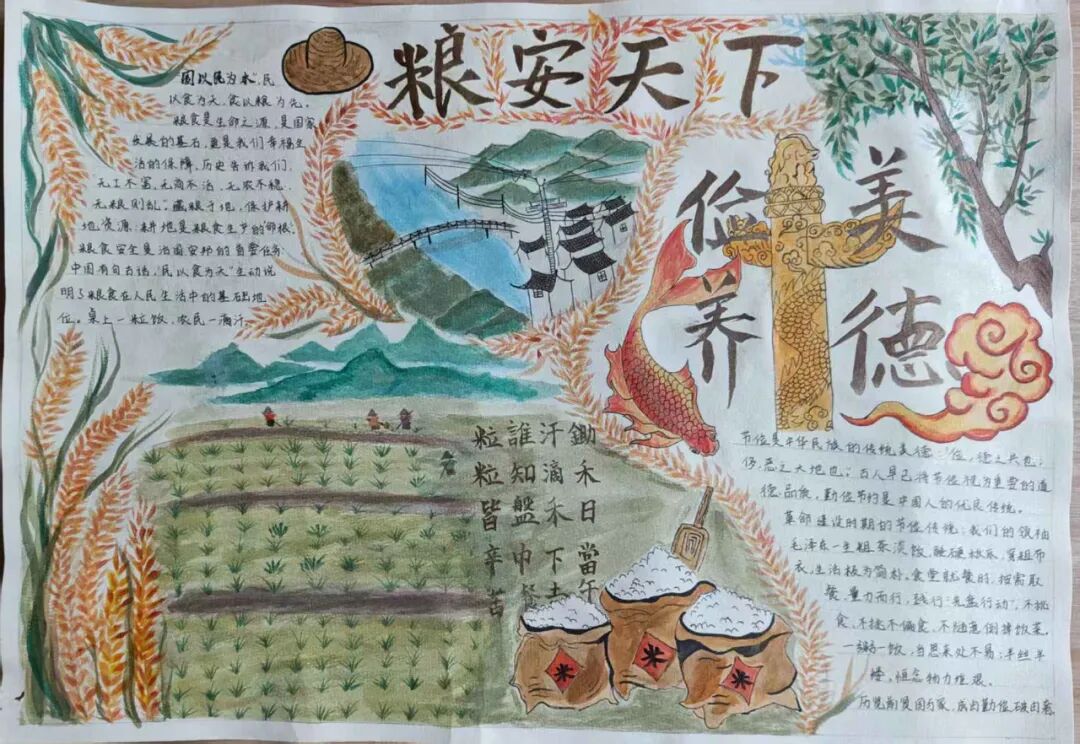 粮安天下
俭养美德
"国以民为本",民
以食为天,食以粮为先。
粮食是生命之源,是国家
发展的基石,更是我们幸福生
活的保障,历史告诉我们,
无工不富,无商不活,无农不稳,
无粮则乱,藏粮于地,保护耕
地资源:耕地是粮食生产的命根,
粮食安全是治国安邦的首要任务,
中国有句古话,"民以食为天"生动说
明了粮食在人民生活中的基础地
位。桌上一粒饭,农民一滴汗。
鋤禾日當午
汗滴禾下土
誰知盤中餐
粒粒皆辛苦
米
米
米
节俭是中华民族的传统美德:"俭,德之共也;
侈,恶之大地也;古人早已将节俭视为重要的道
德品质,勤俭节约是中国人的优良传统。
革命建设时期的节俭传统:我们的领袖
毛泽东一生粗茶淡饭,睡硬板床,穿粗布
衣,生活极为简朴。食堂就餐时,按需取
餐,量力而行,践行"光盘行动",不挑
食,不挑不偏食,不随意倒掉饭菜。
一粥一饭,当思来处不易;半丝半
缕,恒念物力维艰。
历览前贤国与家,成由勤俭破由奢